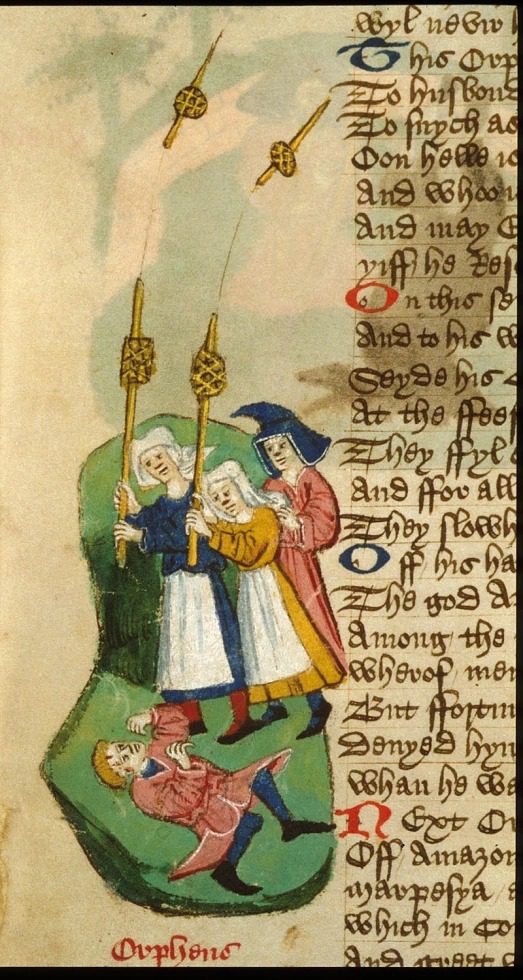 wyl nevir
This Orp
To husbond
To suych ac
Oon helle
And whoo
And may
yiff he Res
On this se
And to his w
Seyde his
At the ffees
They ffyl
And ffor all
They slowh
Off his ha
The god A
Among the
wherof men
But ffortun
denyed hym
whan he wa
NExt Or
Off Amazon
marpesya a
which in Co
And greet
Orpheus